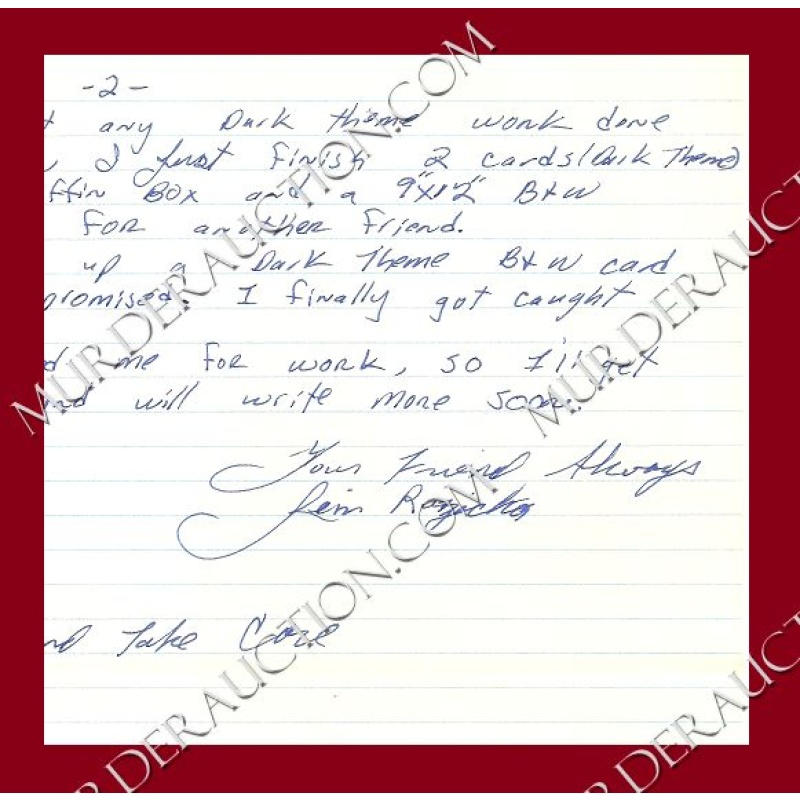 -2-
t any Dark theme work done
I just finish 2 cards (Dark Theme)
ffin Box and a 9"x12" B+W
FOR another friend.
up a Dark Theme B+W card
promised. I finally got caught
d me for work, so I'll get
nd will write more soon.
Your Friend Always
Jim
nd Take Care
MURDERAUCTION.COM
MURDERAUCTION.COM
MURDERAUCTION.COM
MURDERAUCTION.COM